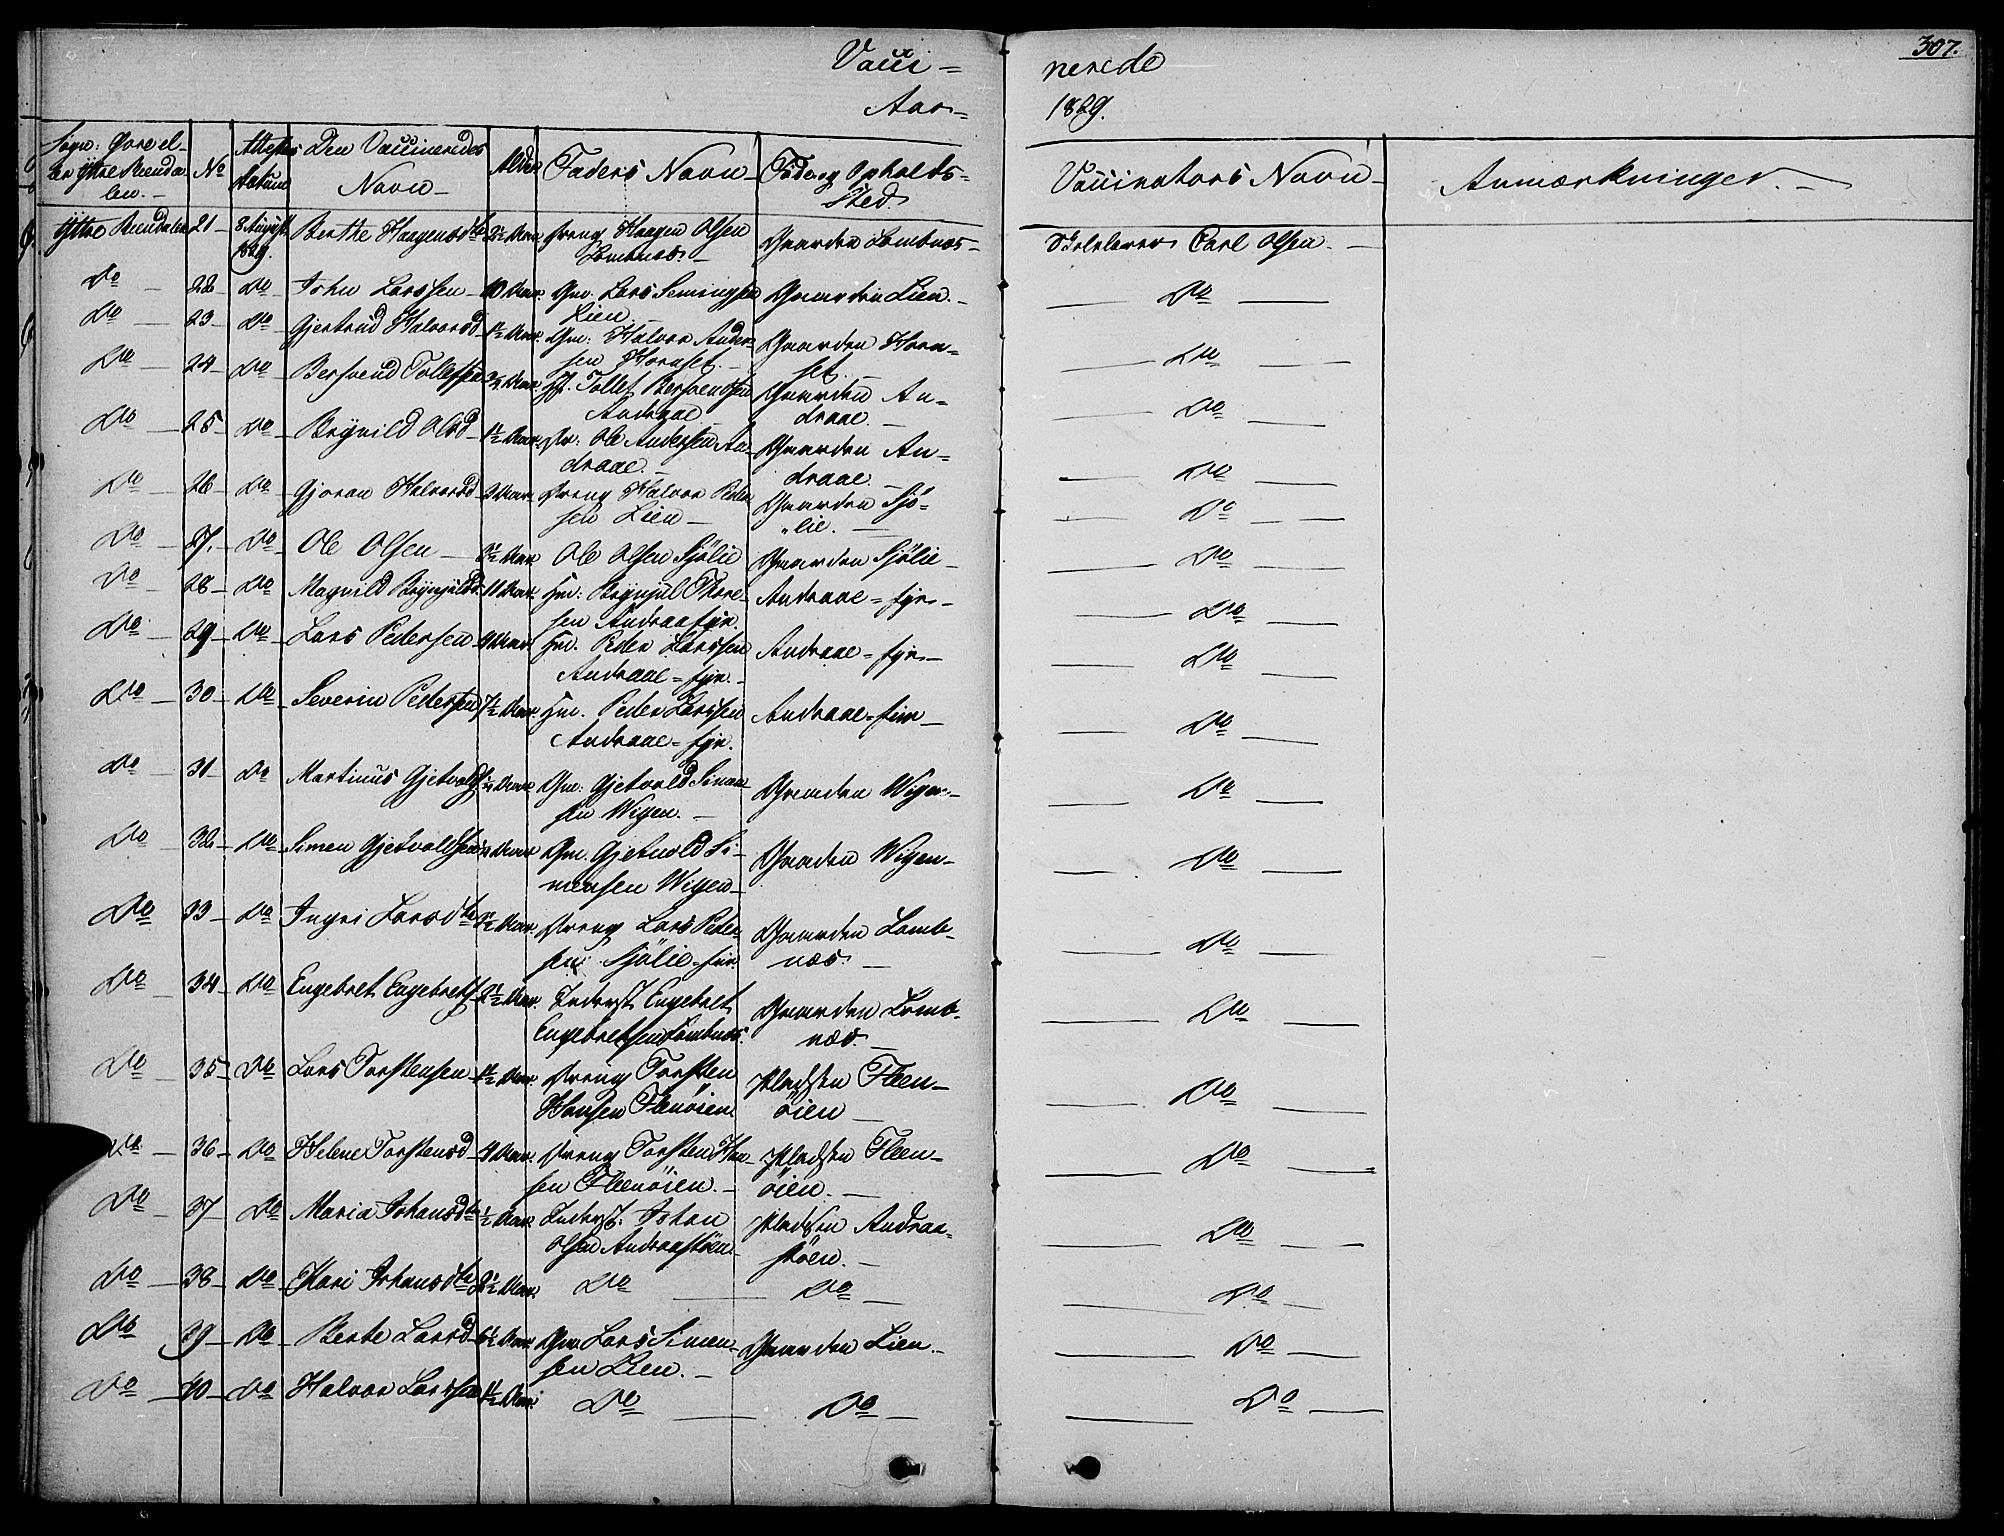 307.
Vacci-nerede
Aar 1829.
Sogn: Øvre el- ler Ytre Rendalen.- | No | Attestes Datum | Den Vaccineredes Navn | Alder | Faders Navn | Føde og Opholds-Sted. | Vaccinators Navn | Anmærkninger.
Ytre Rendalen | 21 | 8 August 1829. | Berthe Haagensdtr | 2½ Aar | Dreng Haagen Olsen Lombnæs | Gaarden Lombnæs | Carl Olsen.
Do | 22 | Do | John Larssen | 10 Aar | Gm. Lars Semingsen Lien. | Gaarden Lien. | Do
Do | 23 | Do | Gjertrud Halvorsd | 1½ Aar | Gm: Halvor Andersen Hornset. | Gaarden Hornset. | Do
Do | 24 | Do | Bersvend Tollefsen | Aar | Tollef Bersvendsen Andraae | Gaarden Andraae. | Do
Do | 25 | Do | Brynild Olsd | 1½ Aar | Ole Andersen Andraae. | Gaarden Andraae. | Do
Do | 26 | Do | Gjoran Halvorsd | 2 Aar | Dreng Halvor Pedersen Lien | Gaarden Sjölie. | Do
Do | 27. | Do | Ole Olsen | 3½ Aar | Ole Olsen Sjölie | Gaarden Sjölie | Do
Do | 28 | Do | Magnild Brynjulsd | 11 Aar. | Hm: Brynjul Thoresen Andraaejr. | Andraae=ejr. | Do
Do | 29 | Do | Lars Pedersen | 9 Aar | Hm. Peder Larssen Andraae=ejr. | Andraae=ejr. | Do
Do | 30 | Do | Severin Pedersen | 7½ Aar | Hm. Peder Larssen Andraae=ejr. | Andraae=ejr | Do
Do | 31 | Do | Martinus Gjetvolds | Aar | Gm: Gjetvold Simensen Wigen. | Gaarden Wigen | Do
Do | 32 | Do | Simen Gjetvoldsen | Aar | Gm. Gjetvold Simensen Wigen | Gaarden Wigen | Do
Do | 33 | Do | Ingri Larsdtr | 3½ Aar | Dreng Lars Pedersen Sjölie=ejr. | Gaarden Lombnæs. | Do
Do | 34 | Do | Engebret Engebrets | 2½ Aar. | Inderst Engebret Engebretsen Lombnæs. | Gaarden Lombnæs. | Do
Do | 35 | Do | Lars Torstensen | 1½ Aar | Dreng Torsten Hansen Fleenöien. | Pladsen Fleenöien | Do
Do | 36 | Do | Helene Torstensd | 4 Aar. | Dreng Torsten Hansen Fleenöien. | Pladsen Fleenöien. | Do
Do | 37 | Do | Maria Johansdtr | ½ Aar | Inderst. Johan Olsen Andraastöen | Pladsen Andraastöen. | Do
Do | 38 | Do | Kari Johansdtr | 2½ Aar. | Do | Do | Do
Do | 39 | Do | Berte Larsd | 6½ Aar | Gm. Lars Simensen Lien. | Gaarden Lien. | Do
Do | 40 | Do | Halvor Larssen | 1½ Aar. | Do | Do | Do